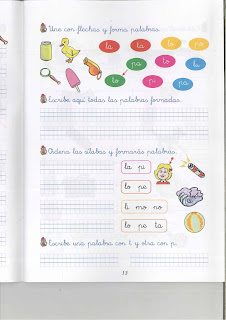 Une con flechas y forma palabras.
la ta no
pa to
pi ta
Escribe aquí todas las palabras formadas.
Ordena las sílabas y formarás palabras.
la pi
lo pe
mo no
lo pe ta
Escribe una palabra con y otra con p.
13